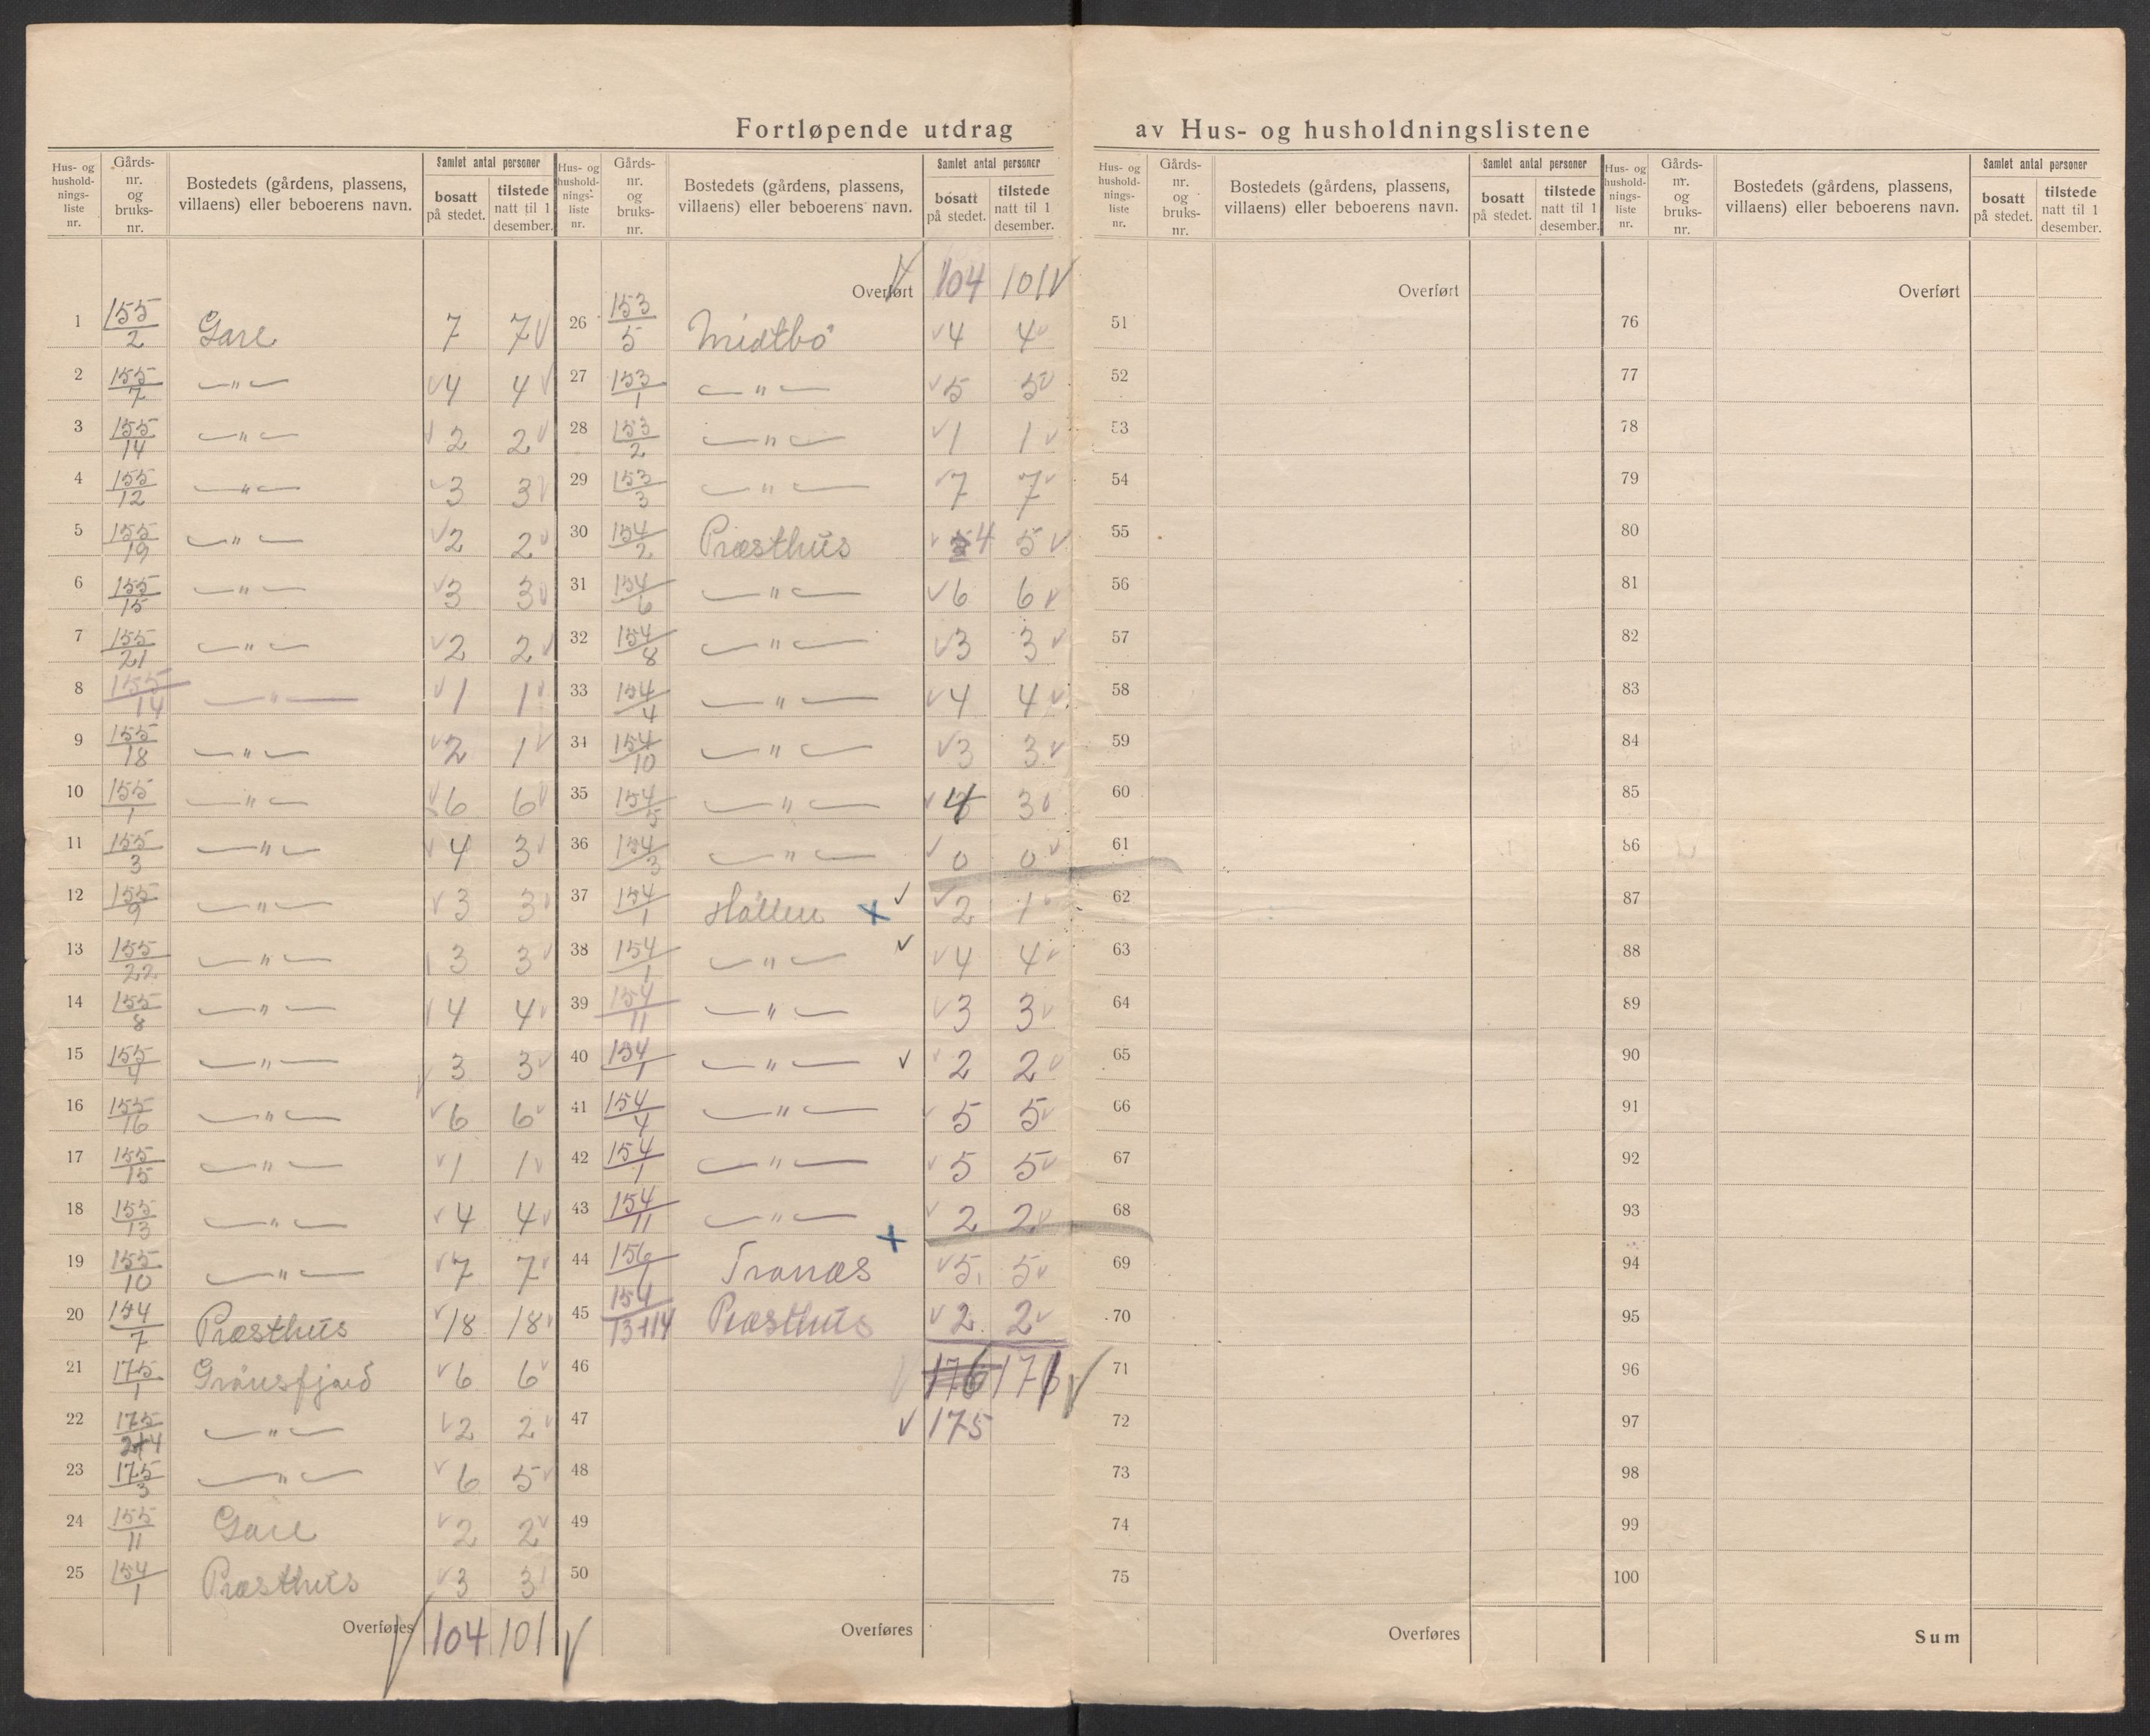 Fortløpende utdrag av Hus- og husholdningslistene
Hus- og hushold-nings-liste nr. | Gårds-nr. og bruks-nr. | Bostedets (gårdens, plassens, villaens) eller beboerens navn. | Samlet antal personer | bosatt på stedet. | tilstede natt til 1 desember.
1 155/2 Gare 7 7
2 155/7 — " — 4 4
3 155/14 — " — 2 2
4 155/12 — " — 3 3
5 155/19 — " — 2 2
6 155/15 — " — 3 3
7 155/21 — " — 2 2
8 155/14 — " — 1 1
9 155/18 — " — 2 1
10 155/1 — " — 6 6
11 155/3 — " — 4 3
12 155/9 — " — 3 3
13 155/22 — " — 3 3
14 155/8 — " — 4 4
15 155/4 — " — 3 3
16 155/16 — " — 6 6
17 155/15 — " — 1 1
18 155/13 — " — 4 4
19 155/10 — " — 7 7
20 154/7 Præsthus 18 18
21 175/1 Grönsfjord 6 6
22 175/2+4 — " — 2 2
23 175/3 — " — 6 5
24 155/11 Gare 2 2
25 154/1 Præsthus 3 3
Overføres 104 101
Hus- og hushold-nings-liste nr. | Gårds-nr. og bruks-nr. | Bostedets (gårdens, plassens, villaens) eller beboerens navn. | Samlet antal personer | bosatt på stedet. | tilstede natt til 1 desember.
Overført 104 101
26 153/5 Midtbö 4 4
27 153/1 — " — 5 5
28 153/2 — " — 1 1
29 153/3 — " — 7 7
30 154/2 Præsthus 4 5
31 154/6 — " — 6 6
32 154/8 — " — 3 3
33 154/4 — " — 4 4
34 154/10 — " — 3 3
35 154/5 — " — 4 3
36 154/3 — " — 0 0
37 154/1 Hallen + 2 1
38 154/1 — " — 4 4
39 154/11 — " — 3 3
40 154/1 — " — 2 2
41 154/4 — " — 5 5
42 154/1 — " — 5 5
43 154/11 — " — 2 2
+
44 156/1 Tranæs 5 5
45 154/13+14 Præsthus 2 2
46 176 176
47 175
48
49
50
Overføres
Hus- og hushold-nings-liste nr. | Gårds-nr. og bruks-nr. | Bostedets (gårdens, plassens, villaens) eller beboerens navn. | Samlet antal personer | bosatt på stedet. | tilstede natt til 1 desember.
Overført
51
52
53
54
55
56
57
58
59
60
61
62
63
64
65
66
67
68
69
70
71
72
73
74
75
Overføres
Hus- og hushold-nings-liste nr. | Gårds-nr. og bruks-nr. | Bostedets (gårdens, plassens, villaens) eller beboerens navn. | Samlet antal personer | bosatt på stedet. | tilstede natt til 1 desember.
Overført
76
77
78
79
80
81
82
83
84
85
86
87
88
89
90
91
92
93
94
95
96
97
98
99
100
Sum